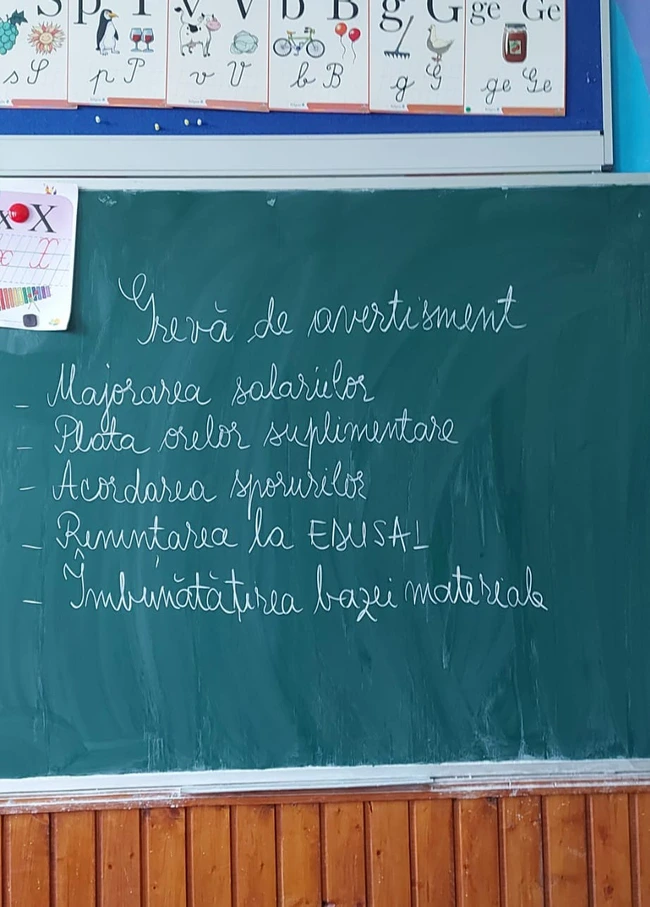 S p P v V b B g G ge Ge
s S p P v V b B g G ge Ge
x X
x X
Grevă de avertisment
- Majorarea salariilor
- Plata orelor suplimentare
- Acordarea sporurilor
- Renunțarea la EDUSAL
- Îmbunătățirea bazei materiale